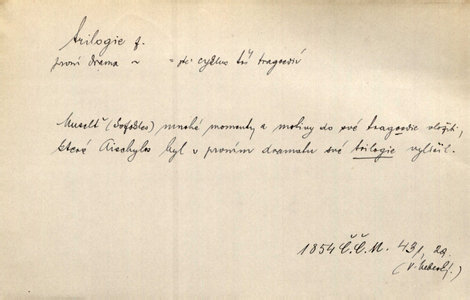 trilogie f.
první drama ~ = cyklus tří tragoedií
Muselť (Sofokles) mnohé momenty a motivy do své tragoedie vložiti,
které Aischylos byl v prvním dramatu své trilogie vylíčil.
1854 Č.Č.M. 431, 29.
(V. Nebeský.)